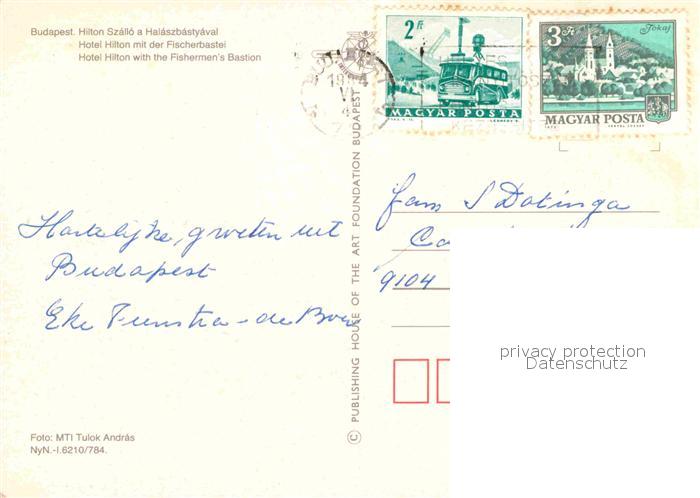 Budapest. Hilton Szálló a Halászbástyával
Hotel Hilton mit der Fischerbastei
Hotel Hilton with the Fishermen's Bastion
2 Ft
MAGYAR POSTA
3 Ft
Tokaj
MAGYAR POSTA
Hartelijke groeten uit
Budapest
Eke Feenstra-de Boer
© PUBLISHING HOUSE OF THE ART FOUNDATION BUDAPEST
Fam S Dotinga
9104
privacy protection
Datenschutz
Foto: MTI Tulok András
NyN.-I.6210/784.